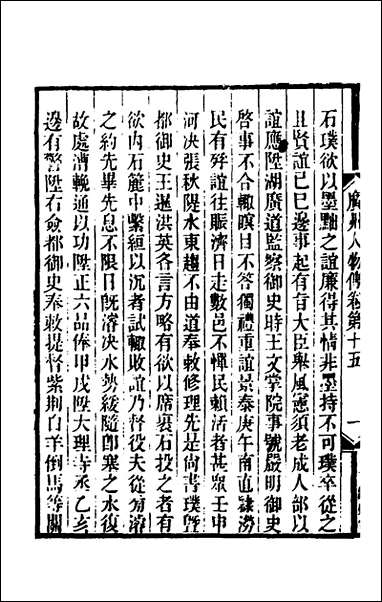 廣州人物傳卷第十五
一
石璞欲以墨黜之誼廉得其情非墨持不可璞卒從之
且賢誼己巳邊事起有旨大臣舉風憲須老成人部以
誼應陞湖廣道監察御史時王文掌院事號嚴明御史
啓事不合輒瞑目不答獨禮重誼景泰庚午南直隸澇
民有殍誼往賑濟日走數邑不憚民賴活者甚眾壬申
河決張秋隄水東趨不由道奉敕修理先是尚書璞暨
都御史王暹洪英各言方略有欲以席裹石投之者有
欲内石簏中繫絙以沉者試輒敗誼乃督役夫從旁濬
之約先畢先息不限日旣濬決水勢緩隨卽塞之水復
故處漕輓通以功陞正六品俸甲戌陞大理寺丞乙亥
邊有警陞右僉都御史奉敕提督紫荆白羊倒馬等關